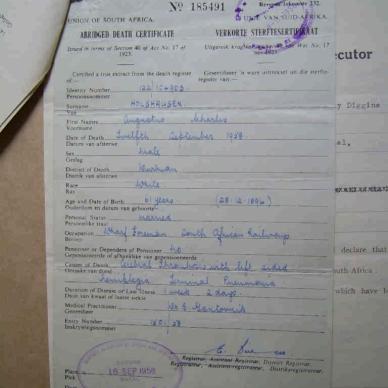 No 185491
UNION OF SOUTH AFRICA.
UNIE VAN SUID-AFRIKA.
ABRIDGED DEATH CERTIFICATE
VERKORTE STERFTESERTIFIKAAT
Issued in terms of Section 40 of Act No. 17 of 1923.
Certified a true extract from the death register of:—
Identity Number
Persoonsnommer
Surname HOLSHAUSEN
Van
First Names Augustus Charles
Voorname
Date of Death Twelfth September 1958
Datum van afsterwe
Sex Male
Geslag
District of Death
Distrik van afsterwe
Race White
Ras
Age and Date of Birth 61 years (28.12.1896)
Ouderdom en datum van geboorte
Personal Status married
Persoonlike staat
Occupation Wharf Foreman South African Railways
Beroep
Pensioner or Dependent of Pensioner No
Gepensioeneerde of afhanklike van gepensioeneerde
Causes of Death Cerebral Thrombosis with left sided
Oorsake van dood Hemiplegia Terminal Pneumonia
Duration of Disease or Last Illness 1 week 2 days
Duur van kwaal of laaste siekte
Medical Practitioner
Geneesheer
Entry Number
Inskrywingsnommer
Registrar, Assistant Registrar, District Registrar.
Place
Plek
16 SEP 1958
Date
ecutor
y Diggins
al,
declare that
uth Africa
which have